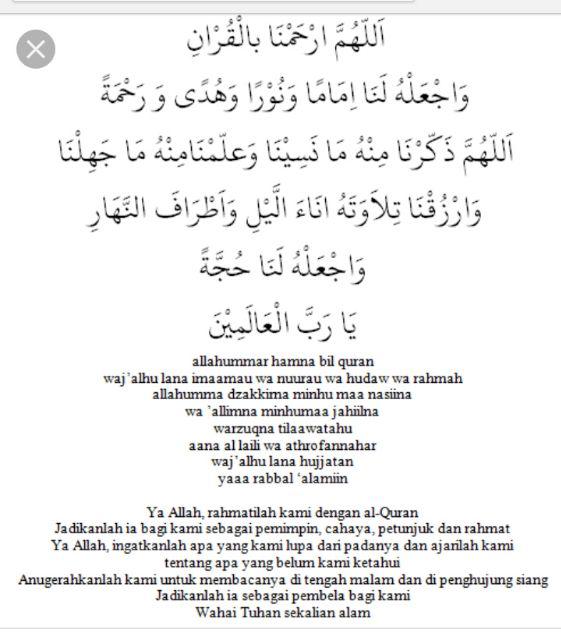 اَللّٰهُمَّ ارْحَمْنَا بِالْقُرْانِ
وَاجْعَلْهُ لَنَا اِمَامًا وَنُوْرًا وَهُدًى وَ رَحْمَةً
اَللّٰهُمَّ ذَكِّرْنَا مِنْهُ مَا نَسِيْنَا وَعَلِّمْنَامِنْهُ مَا جَهِلْنَا
وَارْزُقْنَا تِلاَوَتَهُ انَاءَ الَّيْلِ وَاَطْرَافَ النَّهَارِ
وَاجْعَلْهُ لَنَا حُجَّةً
يَا رَبَّ الْعَالَمِيْنَ
allahummar hamna bil quran
waj'alhu lana imaamau wa nuurau wa hudaw wa rahmah
allahumma dzakkirna minhu maa nasiina
wa 'allimna minhumaa jahiilna
warzuqna tilaawatahu
aana al laili wa athrofannahar
waj'alhu lana hujjatan
yaaa rabbal 'alamiin
Ya Allah, rahmatilah kami dengan al-Quran
Jadikanlah ia bagi kami sebagai pemimpin, cahaya, petunjuk dan rahmat
Ya Allah, ingatkanlah apa yang kami lupa dari padanya dan ajarilah kami
tentang apa yang belum kami ketahui
Anugerahkanlah kami untuk membacanya di tengah malam dan di penghujung siang
Jadikanlah ia sebagai pembela bagi kami
Wahai Tuhan sekalian alam